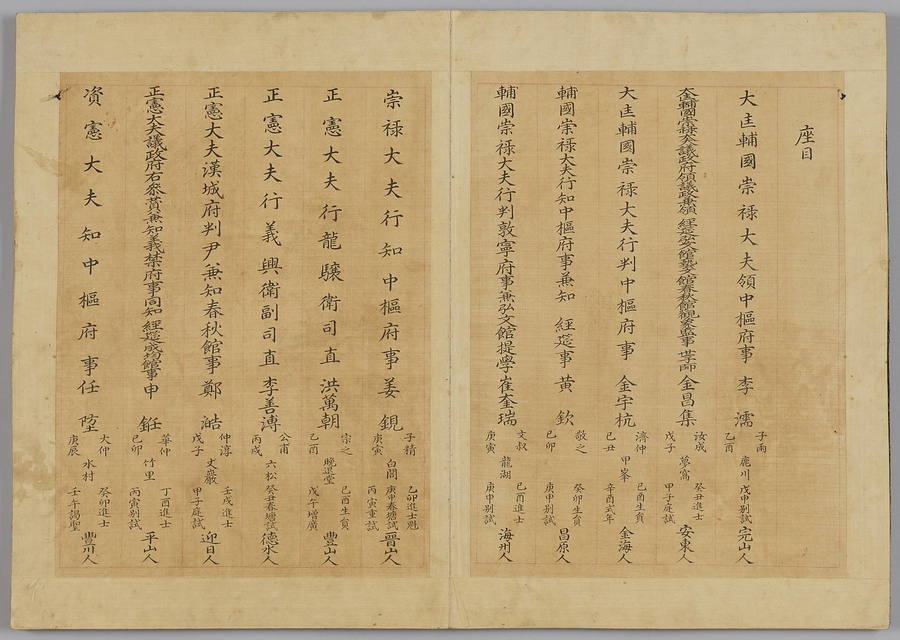 座目
大匡輔國崇祿大夫領中樞府事 李濡 子雨 乙酉 鹿川 戊申別試 完山人
大匡輔國崇祿大夫議政府領議政兼領 經筵弘文館藝文館春秋館觀象監事 世子師 金昌集 汝成 戊子 夢窩 癸丑進士 甲子庭試 安東人
大匡輔國崇祿大夫行判中樞府事 金宇杭 濟仲 己丑 甲峯 己酉生員 辛酉式年 金海人
輔國崇祿大夫行知中樞府事兼知 經筵事 黃欽 敬之 己卯 癸卯生員 庚申別試 昌原人
輔國崇祿大夫行判敦寧府事兼弘文館提學 崔奎瑞 文叔 庚寅 龍湖 己酉進士 庚申別試 海州人
崇祿大夫行知中樞府事 姜鋧 子精 庚寅 白閣 乙卯進士魁 庚申春塘試 丙寅重試 晉山人
正憲大夫行龍驤衛司直 洪萬朝 宗之 乙酉 晚退堂 己酉生員 戊午增廣 豐山人
正憲大夫行義興衛副司直 李善溥 公甫 丙戌 六松 癸丑春塘試 德水人
正憲大夫漢城府判尹兼知春秋館事 鄭澔 仲淳 戊子 丈巖 壬戌進士 甲子庭試 迎日人
正憲大夫議政府右參贊兼知義禁府事同知 經筵成均館事 申銋 華仲 己卯 竹里 丁酉進士 丙寅別試 平山人
資憲大夫知中樞府事 任埅 大仲 庚辰 水村 癸卯進士 壬午謁聖 豐川人